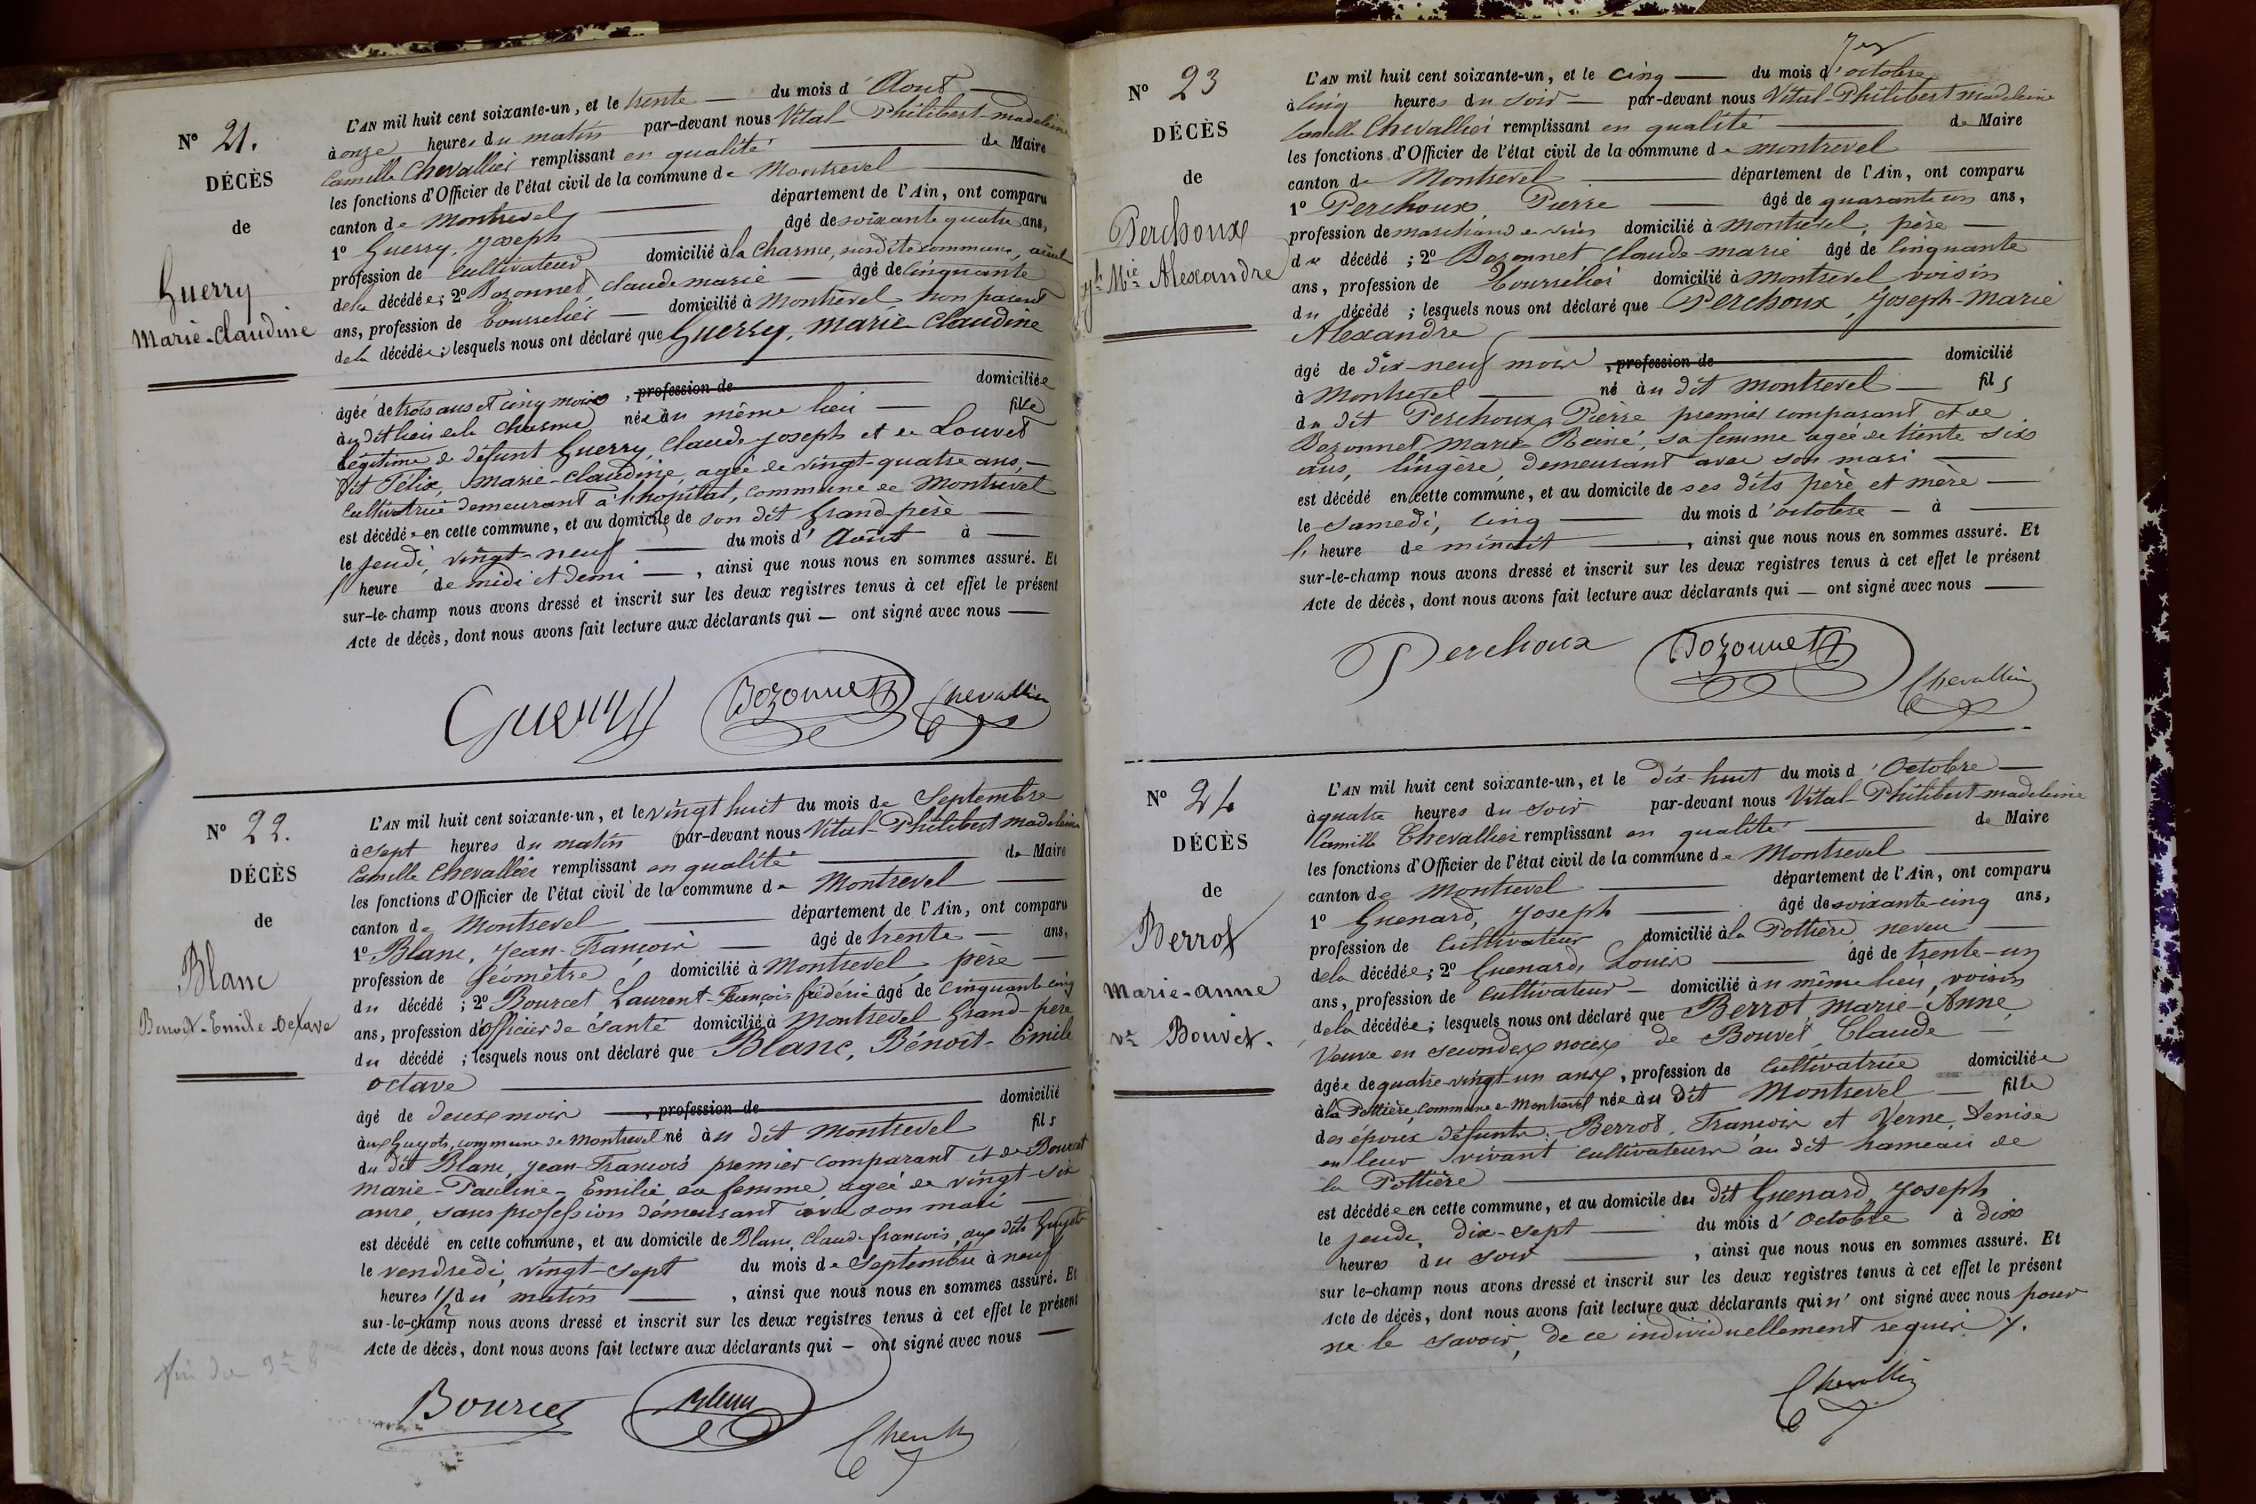 N° 21.
DÉCÈS
de
Guerry
Marie-Claudine
L'AN mil huit cent soixante-un, et le trente — du mois d'Aout —
à onze heures du matin par-devant nous Vital Philibert-madeleine
Camille Chevallier remplissant en qualité — de Maire
les fonctions d'Officier de l'état civil de la commune de Montrevel
canton de Montrevel — département de l'Ain, ont comparu
1° Guerry, Joseph — âgé de soixante quatre ans,
profession de Cultivateur domicilié à la Charme, susdite commune, aïeul
de la décédée; 2° Bozonnet, Claude marie — âgé de cinquante
ans, profession de bourrelier — domicilié à Montrevel non parent
de la décédée; lesquels nous ont déclaré que Guerry, Marie Claudine
âgée de trois ans et cinq mois, profession de — domiciliée
au dit lieu de la Charme née au même lieu — fille
légitime de défunt Guerry, Claude Joseph et de Louvet
dit Félix, Marie-Claudine, agée de vingt-quatre ans, —
Cultivatrice demeurant à l'hopital, commune de Montrevel
est décédée en cette commune, et au domicile de son dit Grand-père —
le jeudi, vingt-neuf — du mois d'Août à —
l' heure de midi et demi —, ainsi que nous nous en sommes assuré. Et
sur-le-champ nous avons dressé et inscrit sur les deux registres tenus à cet effet le présent
Acte de décès, dont nous avons fait lecture aux déclarants qui — ont signé avec nous —
Guerry Bozonnet Chevallier
N° 22.
DÉCÈS
de
Blanc
Benoit-Emile-Octave
L'AN mil huit cent soixante-un, et le vingt huit du mois de Septembre
à sept heures du matin par-devant nous Vital-Philibert madeleine
Camille Chevallier remplissant en qualité — de Maire
les fonctions d'Officier de l'état civil de la commune de Montrevel —
canton de Montrevel — département de l'Ain, ont comparu
1° Blanc, Jean-François — âgé de trente — ans,
profession de Géomètre domicilié à Montrevel, père —
du décédé; 2° Bourcet, Laurent-François frédéric âgé de cinquante cinq
ans, profession d'officier de santé domicilié à Montrevel Grand-père
du décédé; lesquels nous ont déclaré que Blanc, Bénoît-Emile
octave —
âgé de deux mois, profession de — domicilié
aux Guyots, commune de Montrevel né au dit Montrevel fils
du dit Blanc, Jean-François premier comparant et de Bourcet
Marie-Pauline-Emilie sa femme, agée de vingt-six
ans, sans profession demeurant avec son mari —
est décédé en cette commune, et au domicile de Blanc, Claude-françois, aux dits Guyots
le vendredi, vingt-sept du mois de Septembre à neuf
heures 1/2 du matin —, ainsi que nous nous en sommes assuré. Et
sur-le-champ nous avons dressé et inscrit sur les deux registres tenus à cet effet le présent
Acte de décès, dont nous avons fait lecture aux déclarants qui — ont signé avec nous —
Bourcet Blanc
N° 23
DÉCÈS
de
Perchoux
Jh Mie Alexandre
L'AN mil huit cent soixante-un, et le cinq — du mois d'octobre
à cinq heures du soir — par-devant nous Vital-Philibert madeleine
Camille Chevallier remplissant en qualité — de Maire
les fonctions d'Officier de l'état civil de la commune de Montrevel —
canton de Montrevel — département de l'Ain, ont comparu
1° Perchoux, Pierre — âgé de quarante un ans,
profession de marchand de vins domicilié à Montrevel, père —
du décédé; 2° Bozonnet Claude-marie âgé de Cinquante
ans, profession de Bourrelier domicilié à Montrevel voisin
du décédé; lesquels nous ont déclaré que Perchoux, Joseph-Marie
Alexandre —
âgé de dix-neuf mois, profession de — domicilié
à Montrevel — né au dit Montrevel — fils
du dit Perchoux, Pierre premier comparant et de
Bozonnet, Marie Reine, sa femme agée de trente six
ans, lingère, demeurant avec son mari —
est décédé en cette commune, et au domicile de ses dits père et mère —
le samedi, cinq — du mois d'octobre — à —
l' heure de minuit —, ainsi que nous nous en sommes assuré. Et
sur-le-champ nous avons dressé et inscrit sur les deux registres tenus à cet effet le présent
Acte de décès, dont nous avons fait lecture aux déclarants qui — ont signé avec nous —
Perchoux Bozonnet Chevallier
N° 24
DÉCÈS
de
Berrot
Marie-anne
Ve Bouvet.
L'AN mil huit cent soixante-un, et le dix-huit du mois d'Octobre —
à quatre heures du soir par-devant nous Vital-Philibert-madeleine
Camille Chevallier remplissant en qualité — de Maire
les fonctions d'Officier de l'état civil de la commune de Montrevel —
canton de Montrevel — département de l'Ain, ont comparu
1° Guenard, Joseph — âgé de soixante-cinq ans,
profession de Cultivateur domicilié à la Pottière, neveu —
de la décédée; 2° Guenard, Louis — âgé de trente-un
ans, profession de Cultivateur — domicilié au même lieu, voisin
de la décédée; lesquels nous ont déclaré que Berrot, Marie-Anne,
Veuve en secondes noces de Bouvet, Claude —
âgée de quatre-vingt-un ans, profession de Cultivatrice domiciliée
à la Pottière, commune de Montrevel née au dit Montrevel — fille
des époux défunts: Berrot, François et Verne, Denise
en leur vivant cultivateurs au dit hameau de
la Pottière —
est décédée en cette commune, et au domicile des dit Guenard, Joseph
le jeudi, dix-sept — du mois d'Octobre à dix
heures du soir —, ainsi que nous nous en sommes assuré. Et
sur le-champ nous avons dressé et inscrit sur les deux registres tenus à cet effet le présent
Acte de décès, dont nous avons fait lecture aux déclarants qui n'ont signé avec nous pour
ne le savoir, de ce individuellement requis.
Chevallier